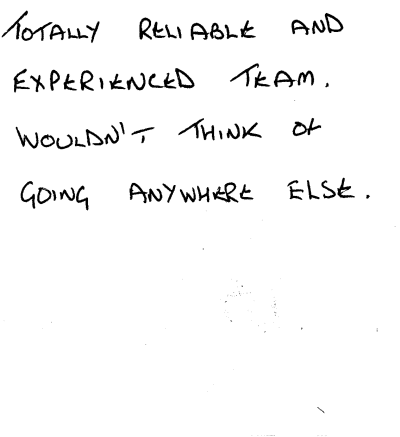 TOTALLY RELIABLE AND
EXPERIENCED TEAM.
WOULDN'T THINK OF
GOING ANYWHERE ELSE.